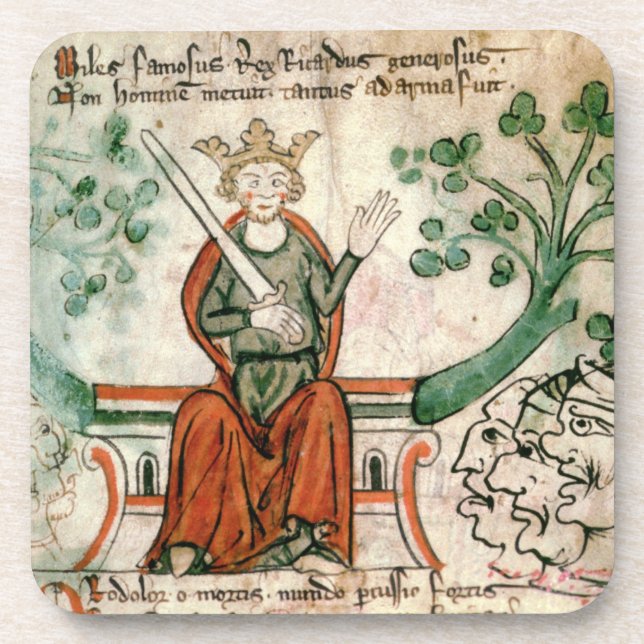 Miles famosus Rex Ricardus generosus.
Non hominē metuit. tantus ad arma fuit.
Prodolor o mortis. nundo pcussio fortis